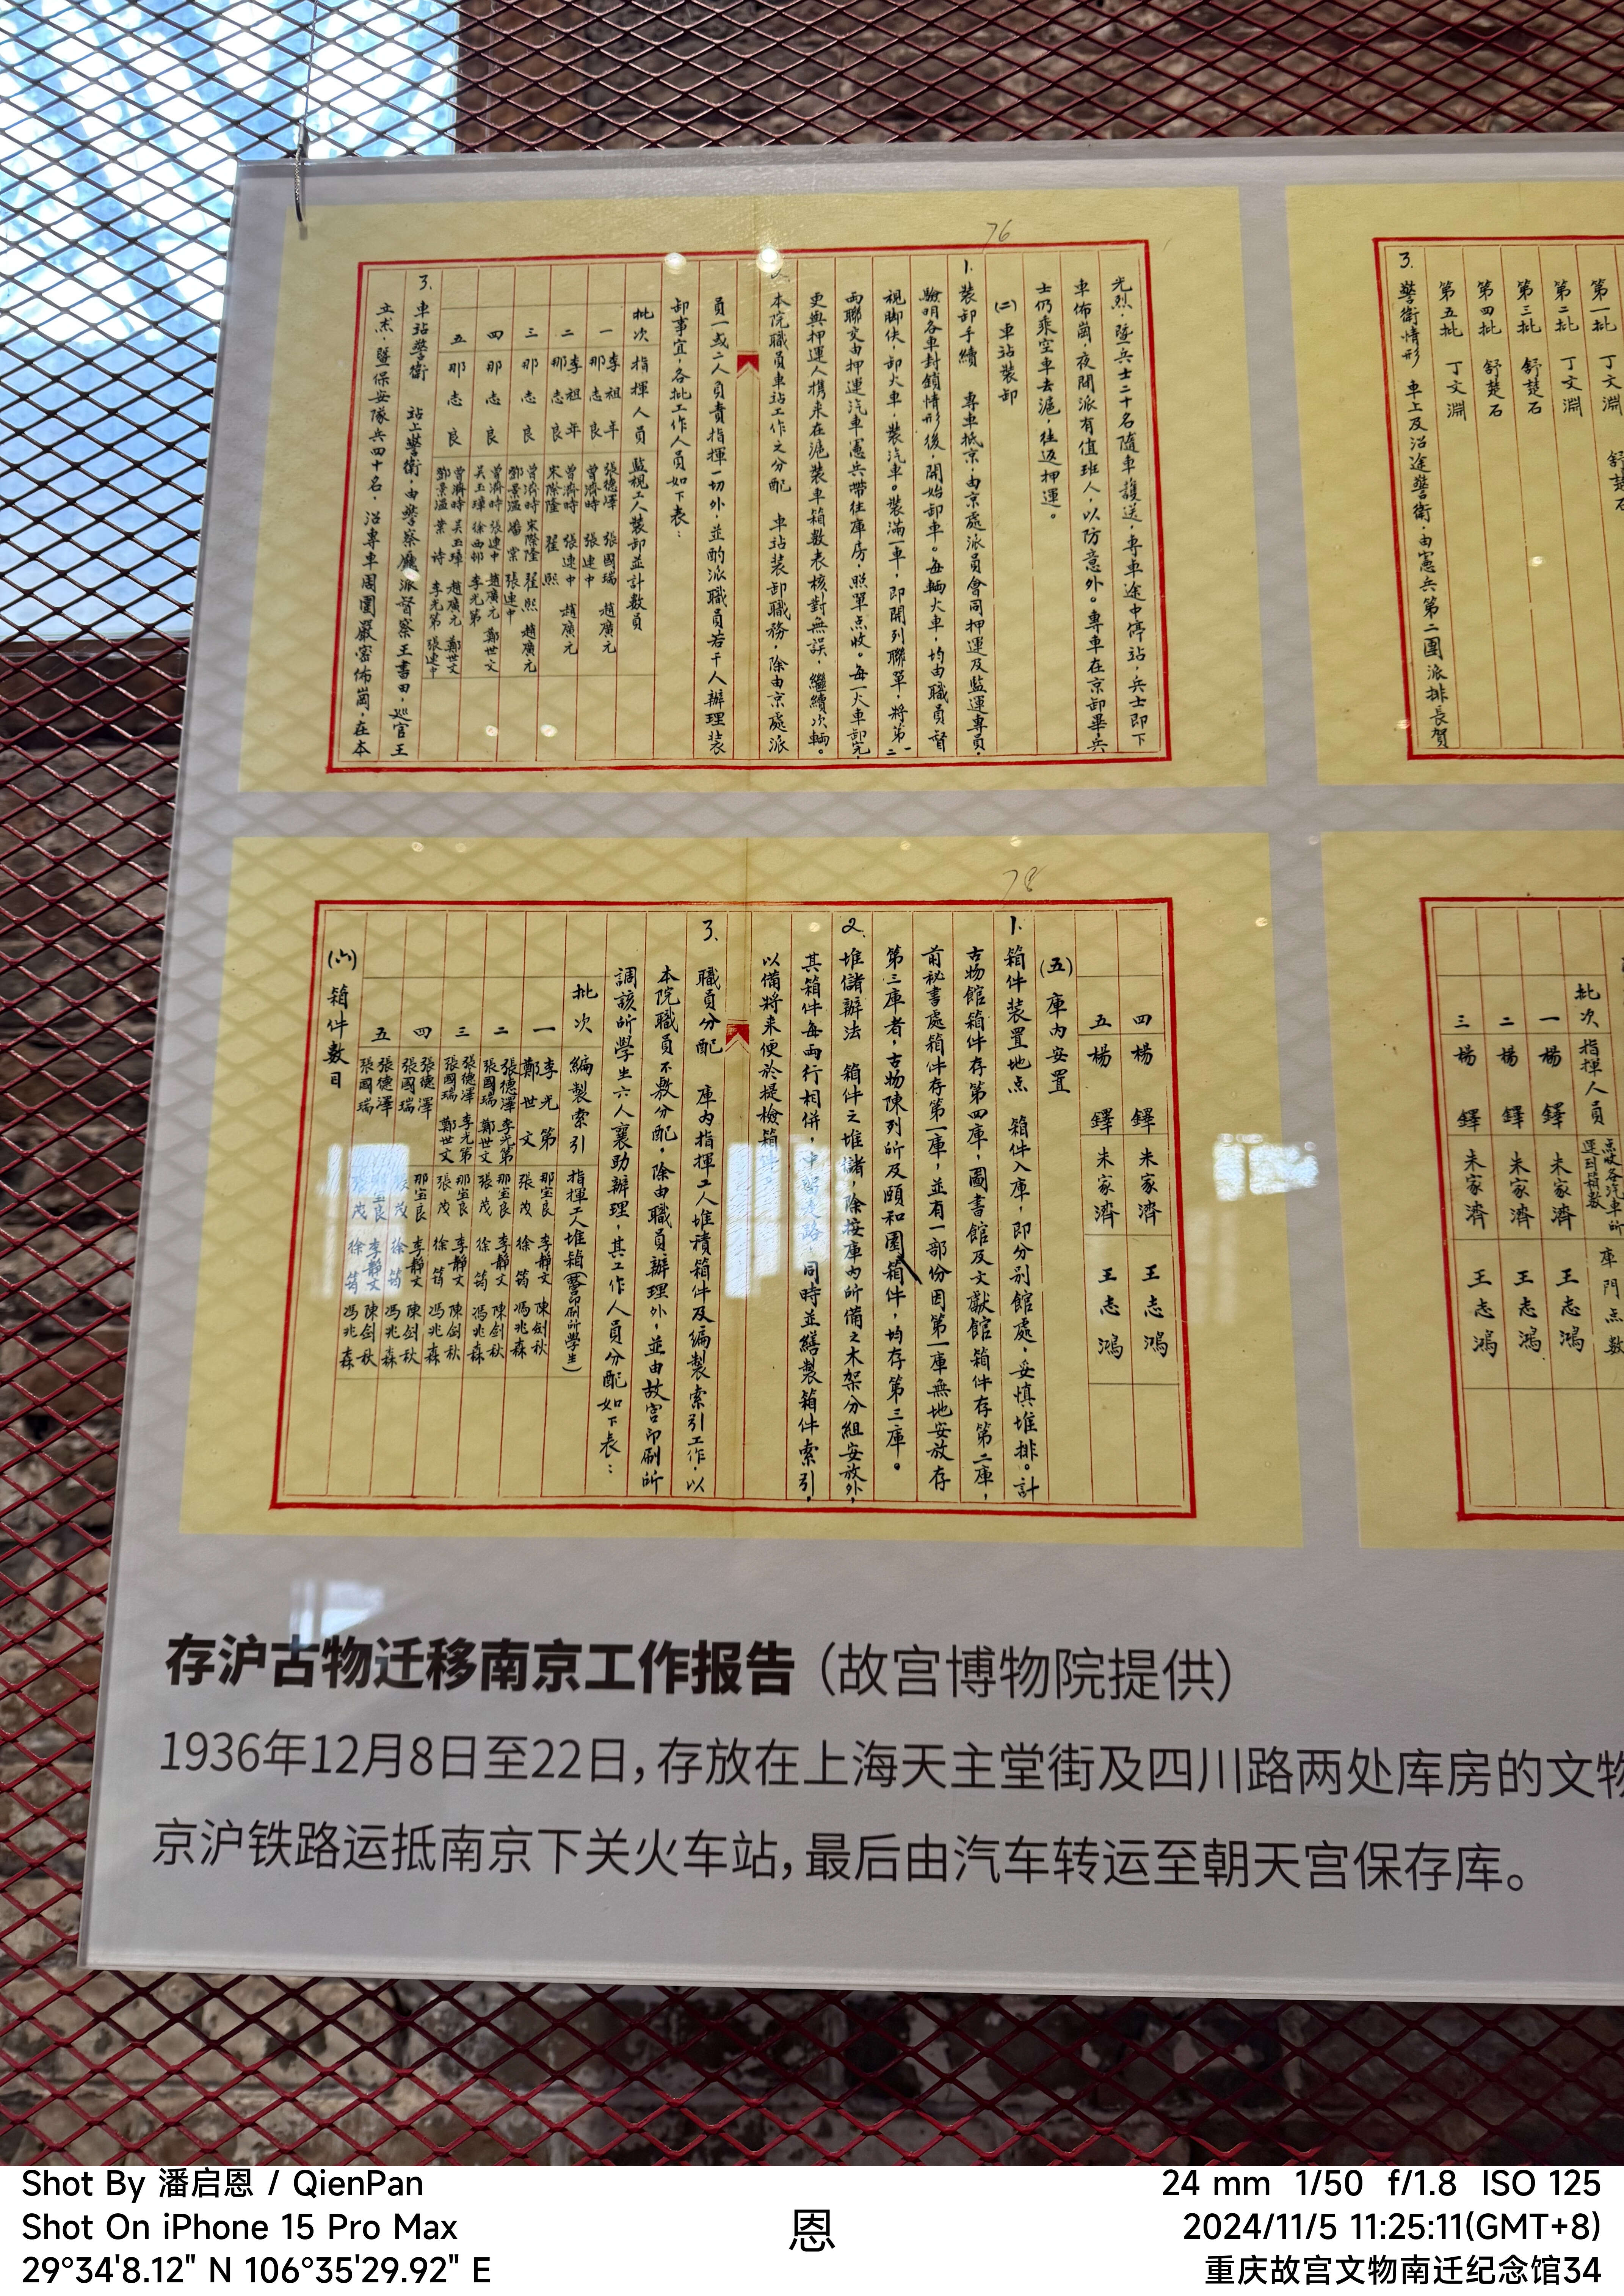 76
光烈，暨兵士二十名隨車護送，專車途中停站，兵士即下
車佈崗，夜間派有值班人，以防意外。專車在京卸畢兵
士仍乘空車去滬，往返押運。
(二) 車站裝卸
1. 裝卸手續 專車抵京，由京處派員會同押運及監運專員，
驗明各車封鎖情形後，開始卸車。每輛火車，均由職員督
視脚伕，卸火車，裝汽車。裝滿一車，即開列聯單，將第一二
兩聯交由押運汽車憲兵帶往庫房，照單点收。每一火車卸完，
更與押運人攜来在滬裝車箱數表核對無誤，繼續次輛。
本院職員車站工作之分配 車站裝卸職務，除由京處派
員一或二人負責指揮一切外，並酌派職員若干人辦理裝
卸事宜，各批工作人員如下表：
批次 指揮人員 監視工人裝卸並計數員
一 李祖年 那志良 張德澤 張國瑞 趙廣元 曾濟時 張連中
二 李祖年 那志良 曾濟時 張連中 趙廣元 宋際隆 翟熙
三 那志良 曾濟時 宋際隆 翟熙 趙廣元 鄧景溫 張連中
四 那志良 曾濟時 張連中 趙廣元 鄭世文 吴玉璋 徐西郁 李光第
五 那志良 曾濟時 吴玉璋 趙廣元 鄭世文 鄧景溫 李光第 張連中
3. 車站警衛 站上警衛，由警察廳派督察王書田，巡官王
立杰，暨保安隊兵四十名，沿專車周圍嚴密佈崗，在本
第一批 丁文淵
第二批 丁文淵
第三批 舒楚石
第四批 舒楚石
第五批 丁文淵
3. 警衛情形 車上及沿途警衛，由憲兵第二團派排長賀
78
四 楊鐸 朱家濟 王志鴻
五 楊鐸 朱家濟 王志鴻
(五) 庫内安置
1. 箱件装置地点 箱件入庫，即分别館處，妥慎堆排。計
古物館箱件存第四庫，圖書館及文獻館箱件存第二庫，
前秘書處箱件存第一庫，並有一部份因第一庫無地安放存
第三庫者，古物陳列所及頤和園箱件，均存第三庫。
2. 堆儲辦法 箱件之堆儲，除按庫内所備之木架分組安放外，
其箱件每兩行相併，中留走路，同時並繕製箱件索引，
以備將来便於提檢箱件。
3. 職員分配 庫内指揮工人堆積箱件及編製索引工作，以
本院職員不敷分配，除由職員辦理外，並由故宫印刷所
調該所學生六人襄助辦理，其工作人員分配如下表：
批次 編製索引 指揮工人堆箱(印刷所學生)
一 李光第 鄭世文 那宝良 李靜文 陳劍秋 張茂 徐筠 馮兆森
二 張德澤 李光第 張國瑞 鄭世文 那宝良 李靜文 陳劍秋 張茂 徐筠 馮兆森
三 張德澤 李光第 張國瑞 鄭世文 那宝良 李靜文 陳劍秋 張茂 徐筠 馮兆森
四 張德澤 張國瑞 那宝良 李靜文 陳劍秋 張茂 徐筠 馮兆森
五 張德澤 張國瑞 李靜文 陳劍秋 張茂 徐筠 馮兆森
(六) 箱件數目
批次 指揮人員 庫門点數
一 楊鐸 朱家濟 王志鴻
二 楊鐸 朱家濟 王志鴻
三 楊鐸 朱家濟 王志鴻
存沪古物迁移南京工作报告（故宫博物院提供）
1936年12月8日至22日，存放在上海天主堂街及四川路两处库房的文物
京沪铁路运抵南京下关火车站，最后由汽车转运至朝天宫保存库。
Shot By 潘启恩 / QienPan
Shot On iPhone 15 Pro Max
29°34'8.12" N 106°35'29.92" E
恩
24 mm 1/50 f/1.8 ISO 125
2024/11/5 11:25:11(GMT+8)
重庆故宫文物南迁纪念馆34